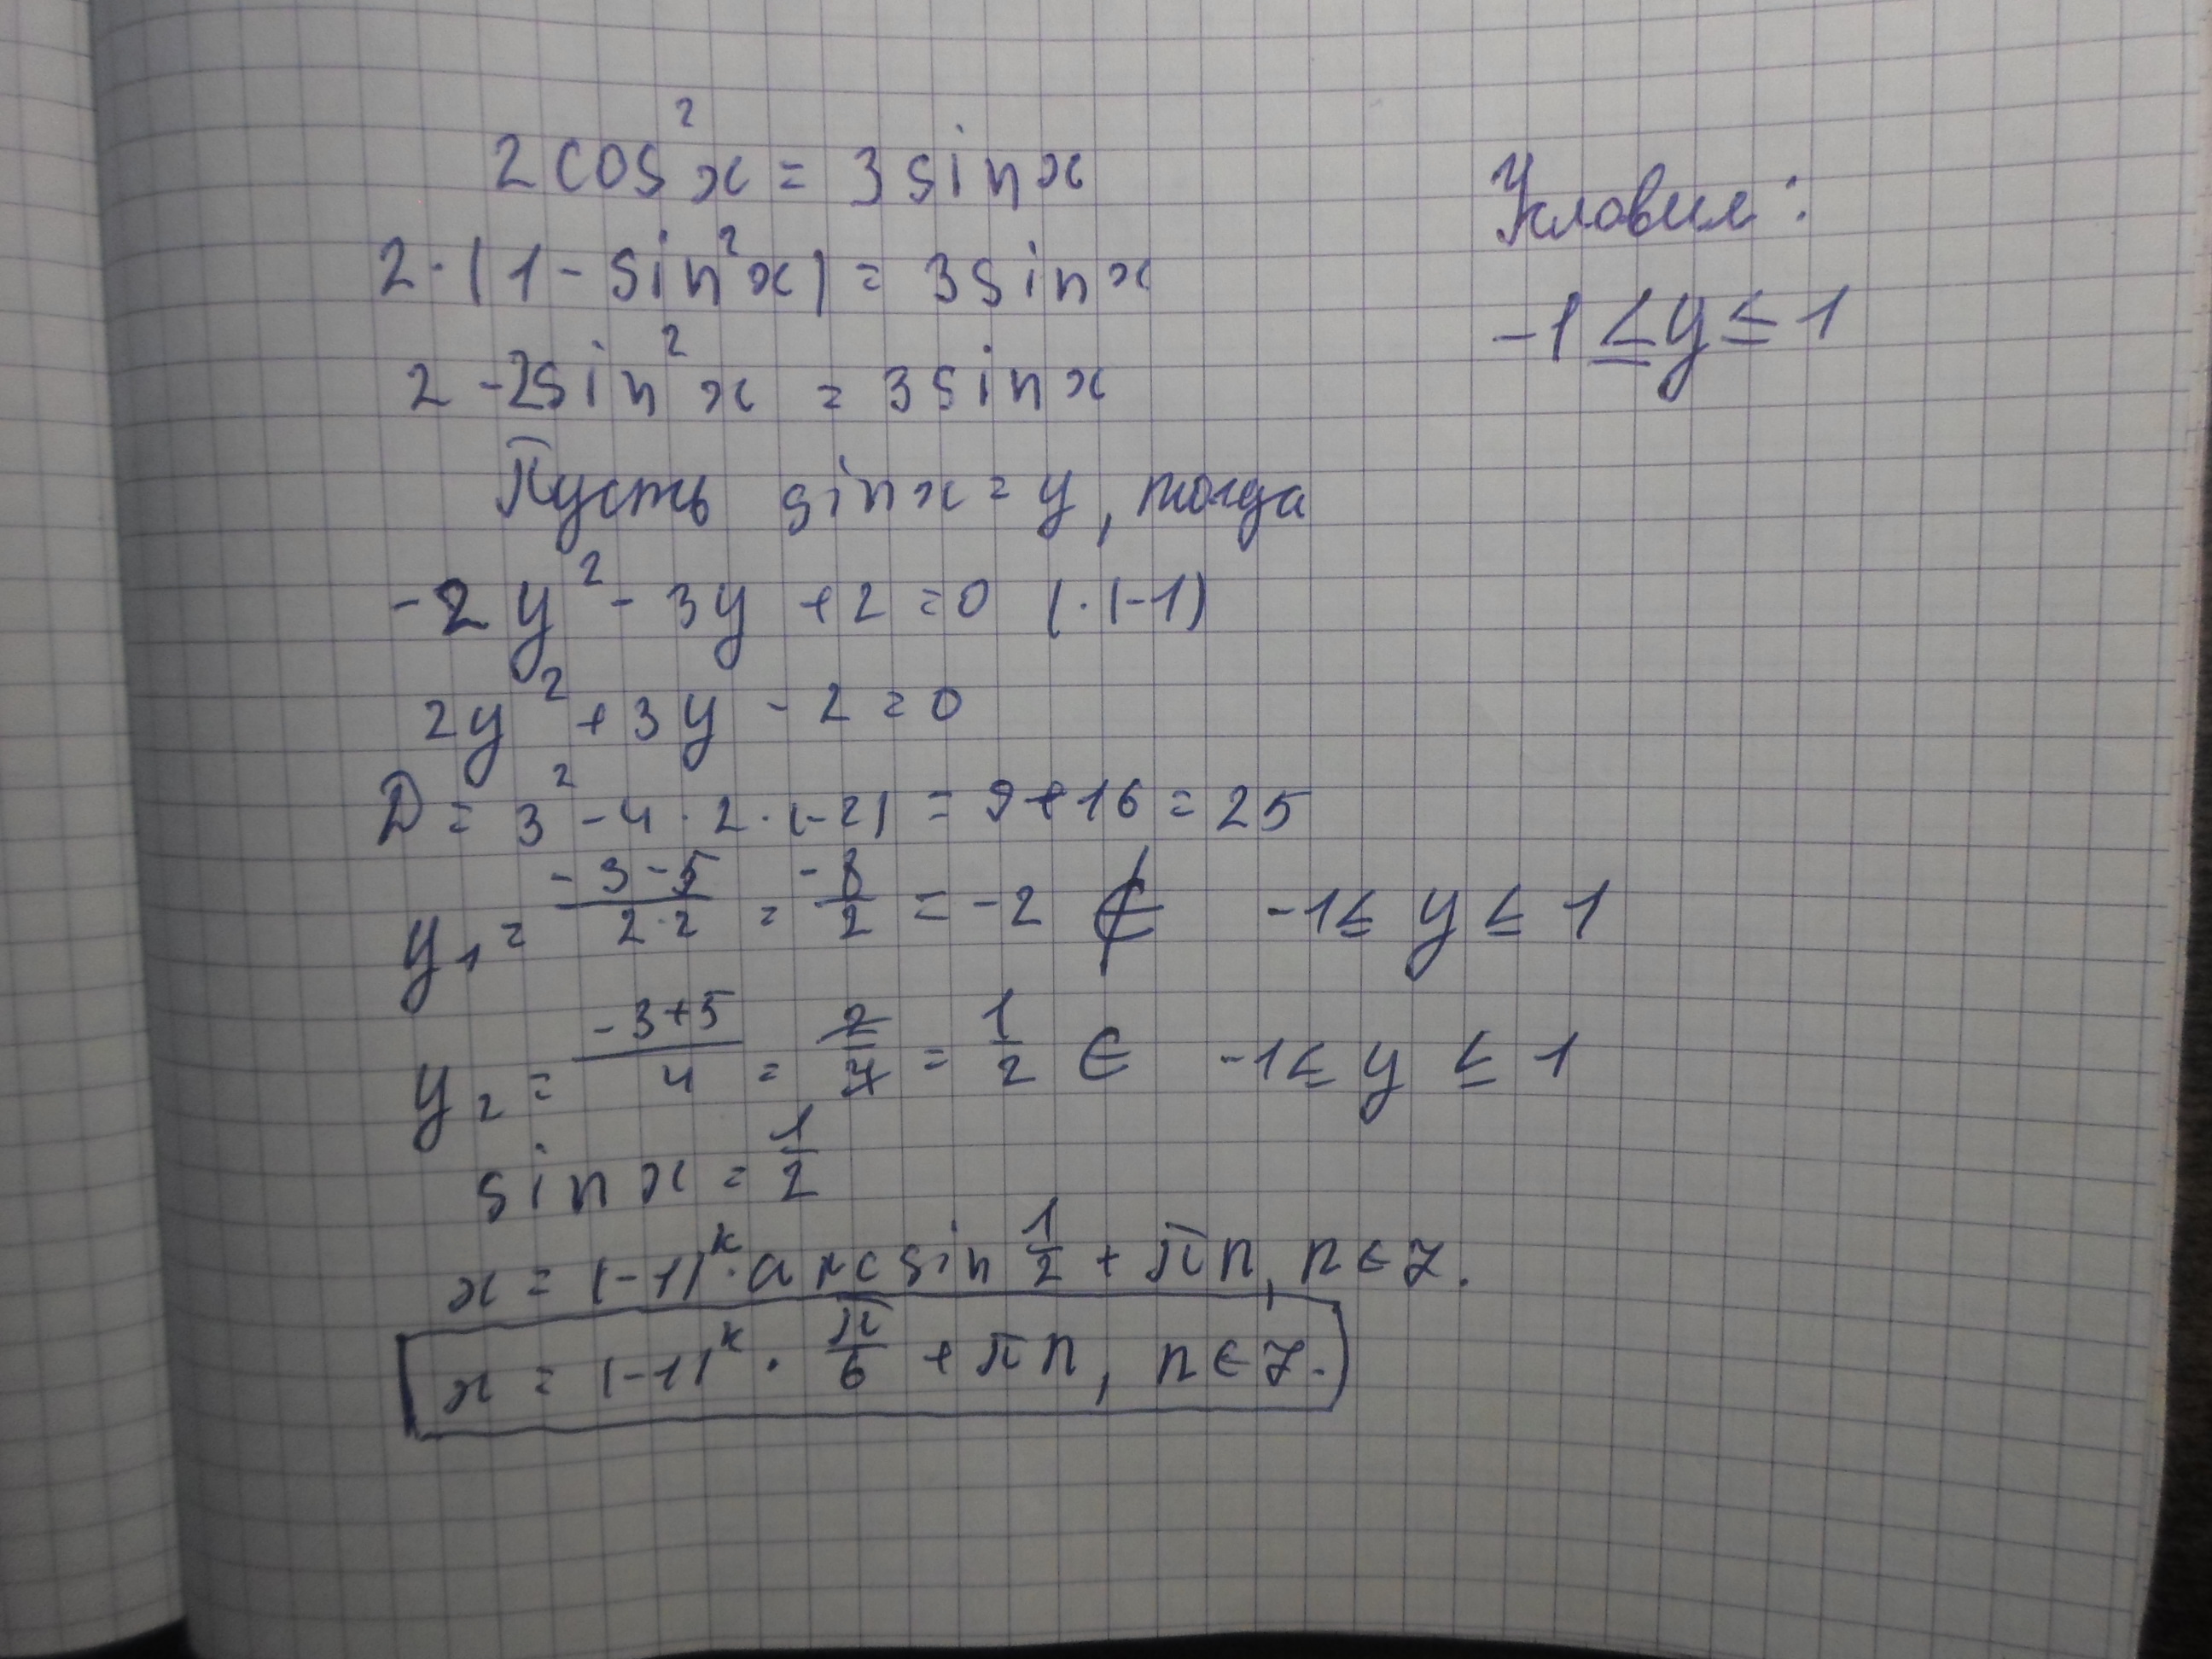 2cos²x = 3sinx
Условия:
2·(1-sin²x) = 3sinx
-1 ≤ y ≤ 1
2 - 2sin²x = 3sinx
Пусть sinx = y, тогда
-2y² - 3y + 2 = 0 (·(-1)
2y² + 3y - 2 = 0
D = 3² - 4·2·(-2) = 9+16 = 25
y₁ = (-3-5)/(2·2) = -8/2 = -2 ∉ -1 ≤ y ≤ 1
y₂ = (-3+5)/4 = 2/4 = 1/2 ∈ -1 ≤ y ≤ 1
sinx = 1/2
x = (-1)ᵏ·arcsin 1/2 + πn, n∈Z.
x = (-1)ᵏ · π/6 + πn, n∈Z.